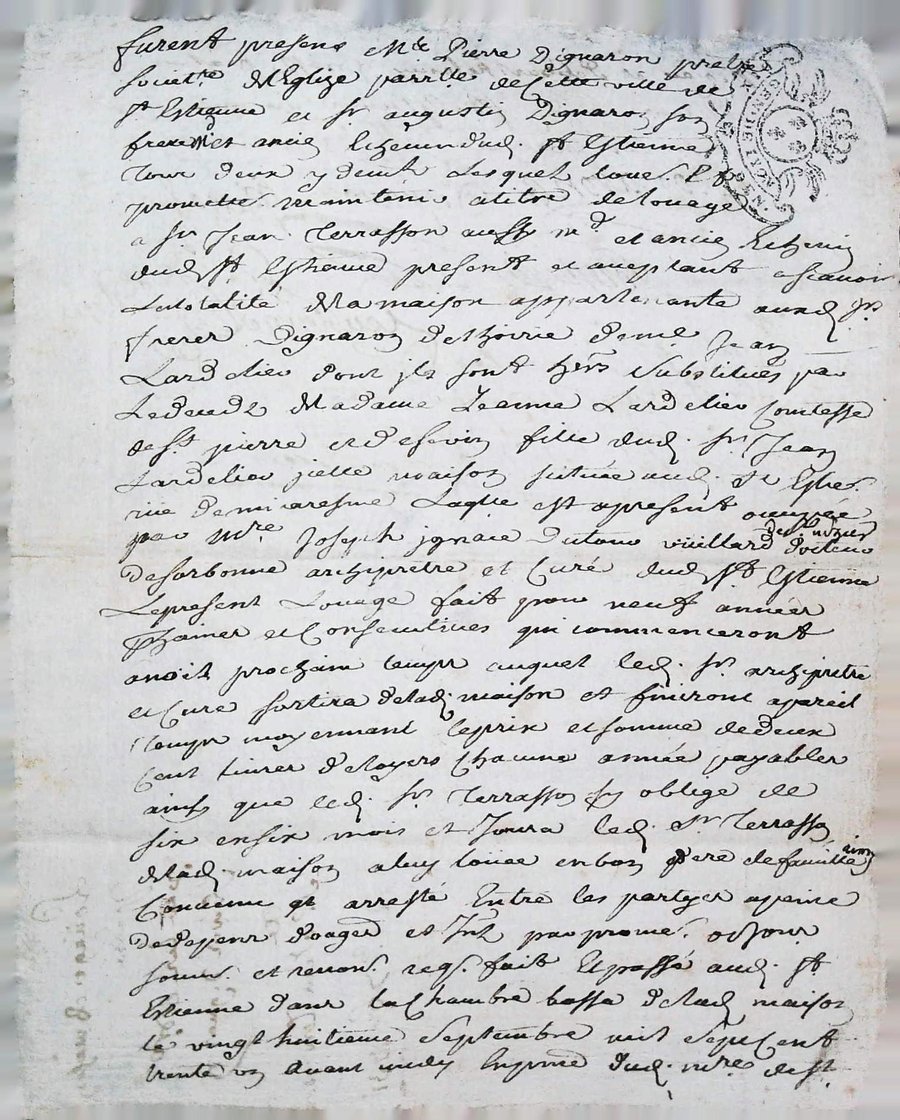 furent presens Mre Pierre Dignaron pretre
societre de l'Eglise parrlle de Cette ville de
St Estienne et sr augustin Dignaron son
frere Md et ancien Echevin dud. St Estienne
tous deux y demts Lesquels loues. Et
promettes. maintenir a titre de louage
a sr Jean Terrasson aussy md et ancien Echevin
dud St Estienne present et acceptant a scavoir
La totalité de la maison appartenante auxd srs
freres Dignaron de l'hoirie de me Jean
Lardelier dont ils sont hers substitues par
Le deced de Madame Jeanne Lardelier Comtesse
de st pierre et d'esevin fille dud. sr Jean
Lardelier jcelle maison scituée aud. St Estne.
rue de mi caresme Laqlle est apresent occupée
par Mre Joseph jgnace Dutour vüillard Docteur
de sorbonne archipretre et Curé dud St Estienne
Le present Louage fait pour neuf années
Entieres et Consecutives qui commenceront
a prochain temps auquel led. sr archipretre
et Curé sortira de lad. maison et finiront a pareil
temps moyennant le prix et somme de deux
Cent livres de loyers Chacune année payables
ainsy que led. sr Terrasson sy oblige de
six en six mois et Jouira led. Sr Terrasson
de lad. maison a luy louée en bon pere de famille ainsy
Convenu et arresté Entre les partyes a peine
de depens domages et Jnts par promes. objons
soumis. et renons. reqs. fait Et passé aud. St
Estienne dans la Chambre basse de lad maison
le vingt huitieme septembre mil sept Cent
trente un avant midy En pnce dud. mre de St
NGENER DE LYON